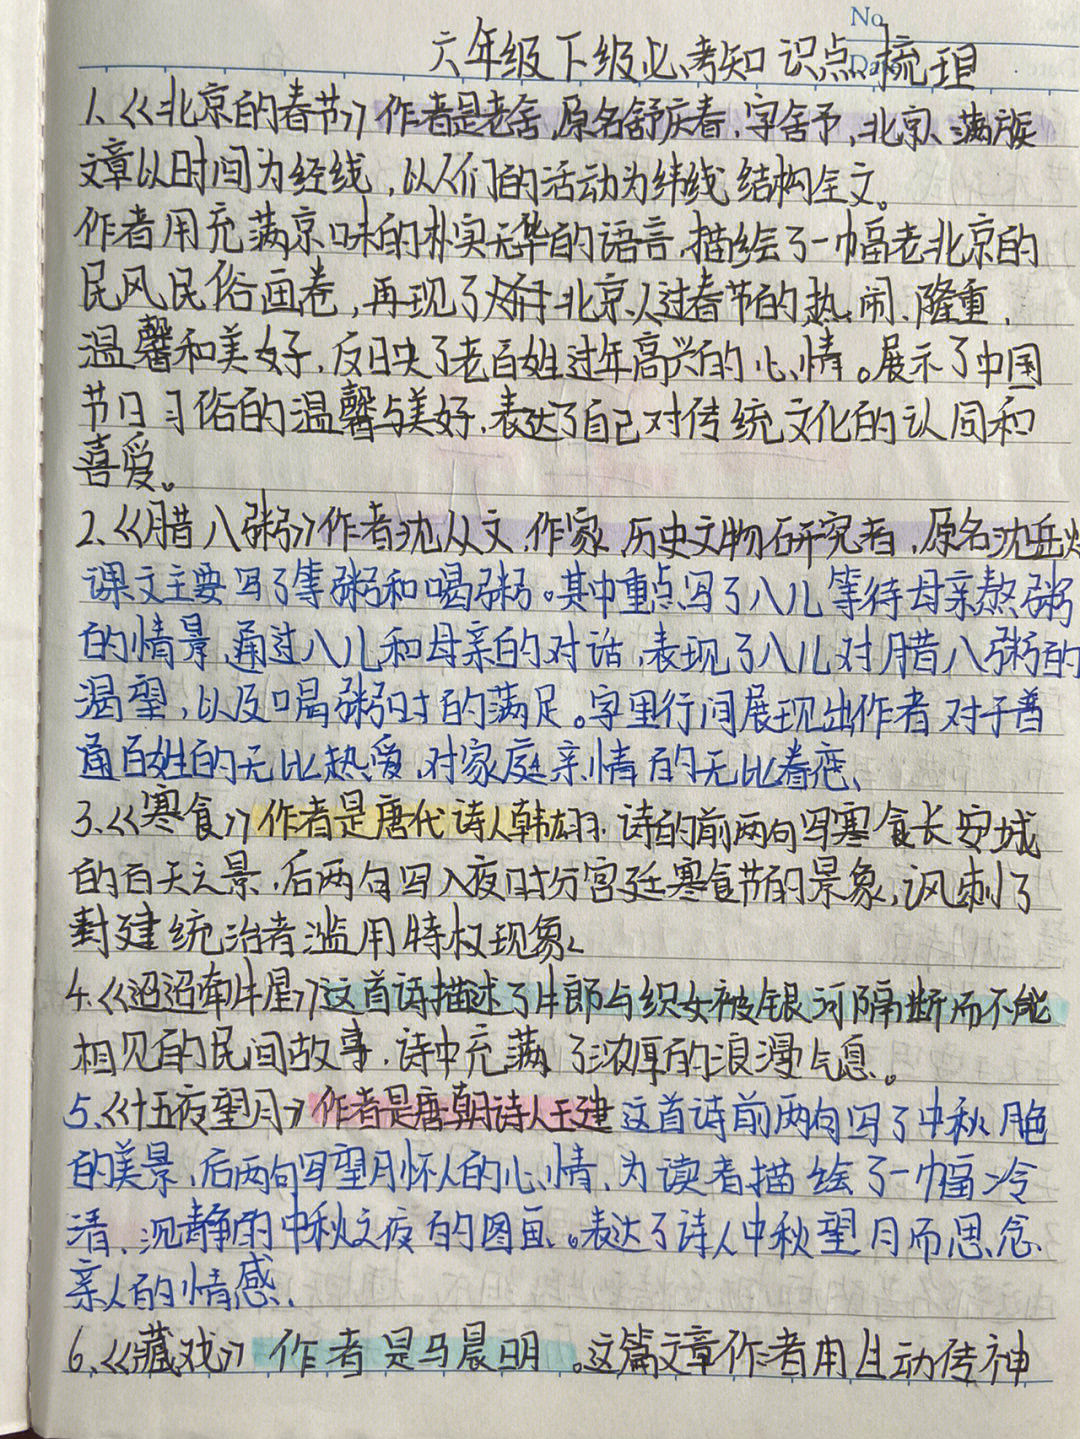 No
Da
六年级下级必考知识点梳理
1、《北京的春节》作者是老舍,原名舒庆春,字舍予,北京、满族
文章以时间为经线,以人们的活动为纬线结构全文。
作者用充满京味的朴实无华的语言,描绘了一幅老北京的
民风民俗画卷,再现了 北京人过春节的热闹、隆重、
温馨和美好,反映了老百姓过年高兴的心情。展示了中国
节日习俗的温馨与美好,表达了自己对传统文化的认同和
喜爱。
2、《腊八粥》作者沈从文,作家,历史文物研究者,原名沈岳焕
课文主要写了等粥和喝粥。其中重点写了八儿等待母亲熬粥
的情景,通过八儿和母亲的对话,表现了八儿对腊八粥的
渴望,以及喝粥时的满足。字里行间展现出作者对于普
通百姓的无比热爱,对家庭亲情的无比眷恋、
3、《寒食》作者是唐代诗人韩翃.诗的前两句写寒食长安城
的白天之景,后两句写入夜时分宫廷寒食节的景象,讽刺了
封建统治者滥用特权现象。
4、《迢迢牵牛星》这首诗描述了牛郎与织女被银河隔断而不能
相见的民间故事,诗中充满了浓厚的浪漫气息。
5、《十五夜望月》作者是唐朝诗人王建 这首诗前两句写了中秋月色
的美景,后两句写望月怀人的心情,为读者描绘了一幅冷
清、沉静的中秋之夜的图画。表达了诗人中秋望月而思念
亲人的情感.
6、《藏戏》作者是马晨明。这篇文章作者用生动传神